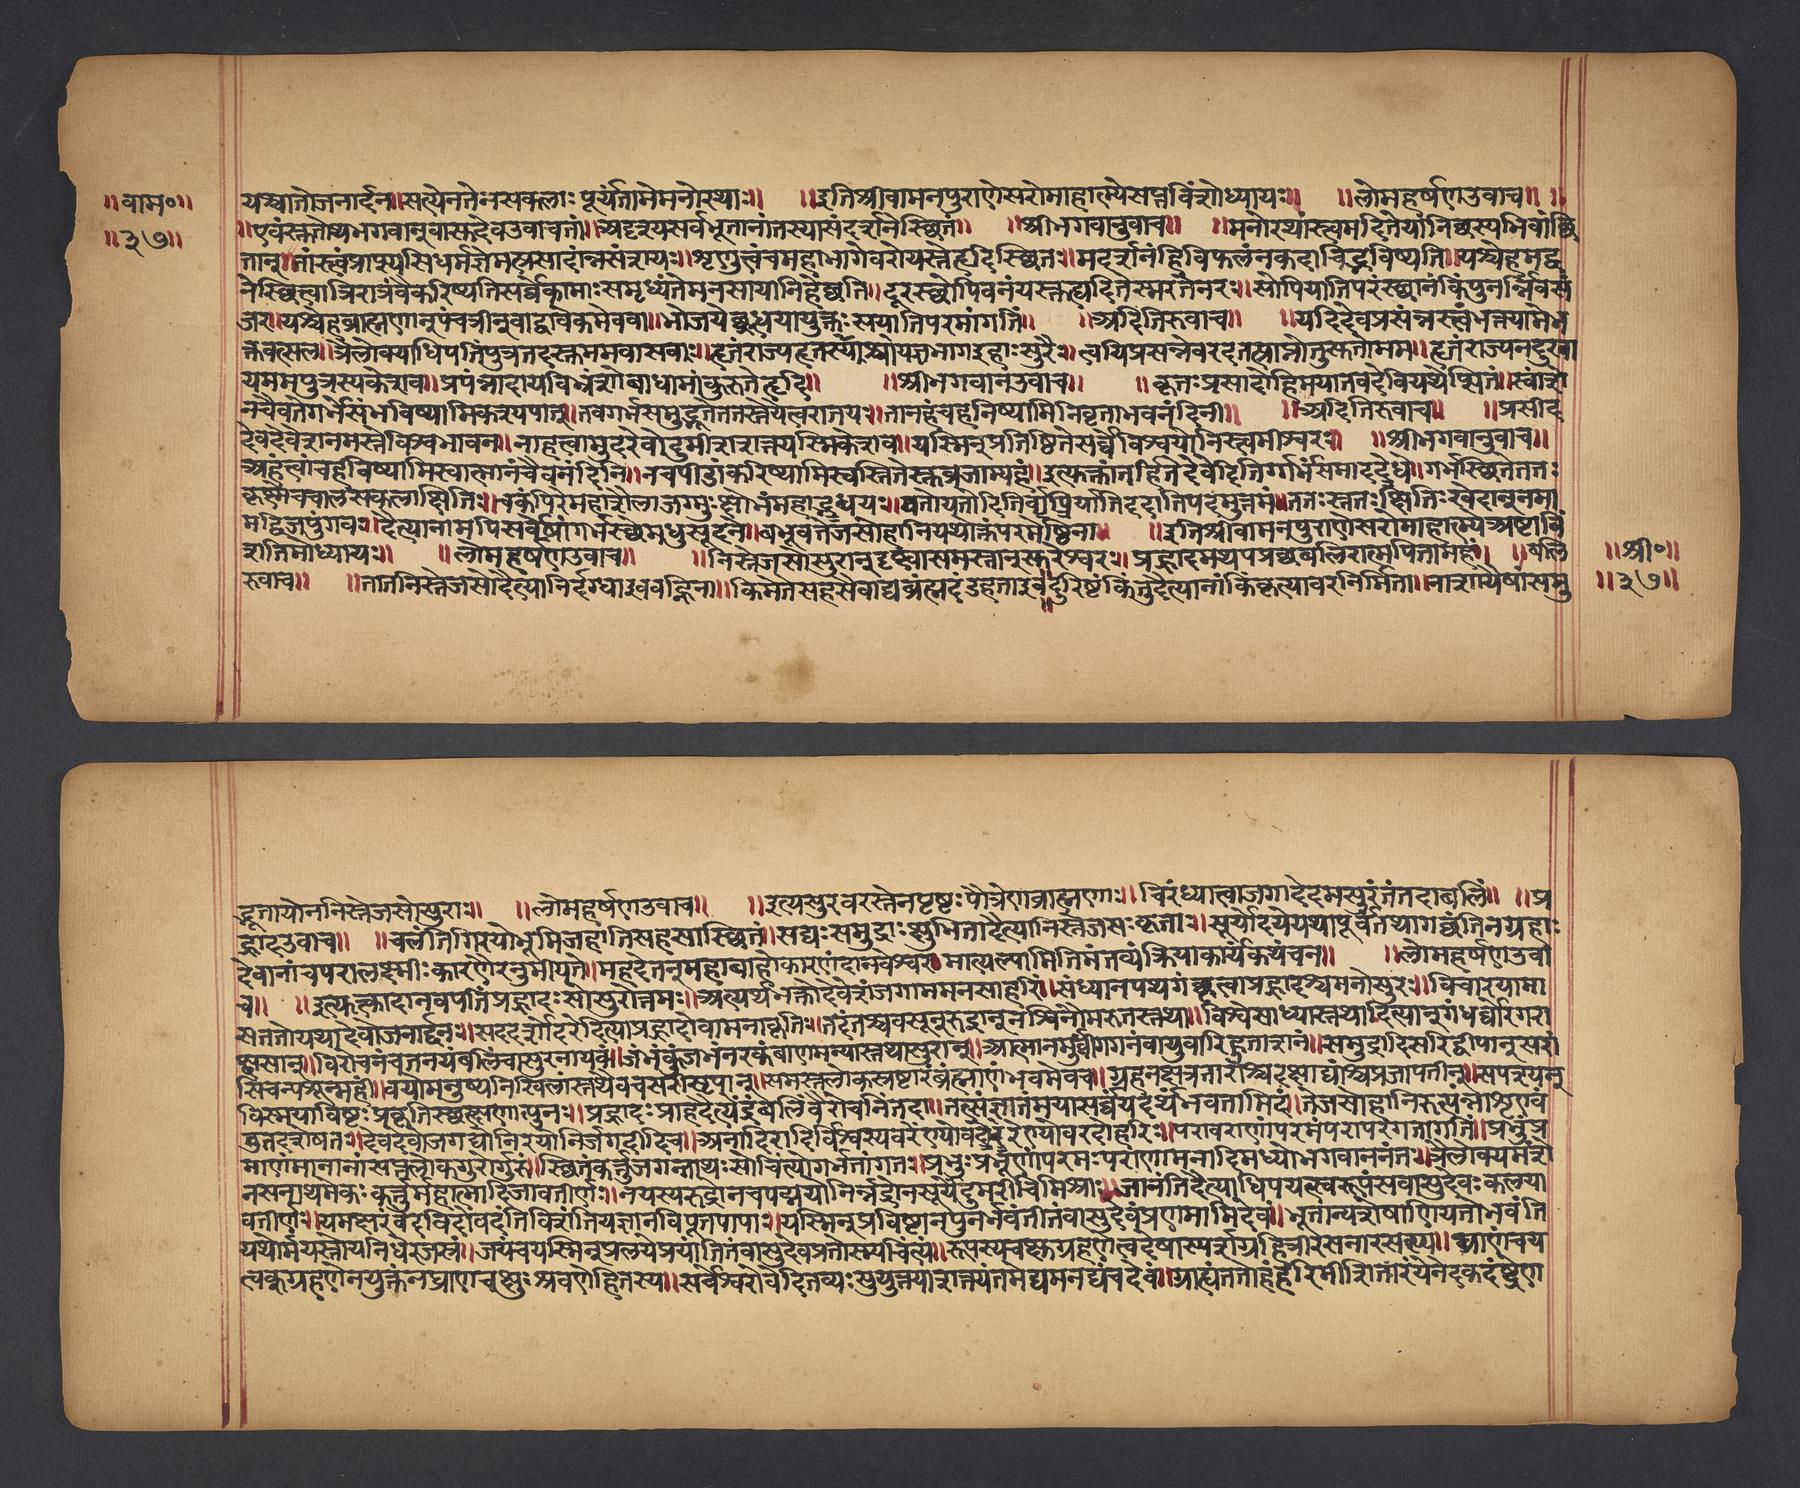 ॥वाम॰॥
॥३७॥
यच्चातोजनार्दन॥सत्येनतेनसकलाः पूर्यंतामेमनोरथाः॥ ॥इतिश्रीवामनपुराणेसरोमाहात्म्येसप्तविंशोध्यायः॥ ॥लोमहर्षणउवाच॥ ॥
॥एवंस्तुतोथभगवान्वासुदेवउवाचतां॥अदृश्यसर्वभूतानांतस्यासंदर्शनेस्थितं॥ ॥श्रीभगवानुवाच॥ ॥मनोरथांस्त्वमदितेयांनिच्छस्यभिवांछि
तान्॥तांस्त्वंप्राप्स्यसिधर्मज्ञेमत्प्रसादान्नसंशयः॥शृणुत्वंचमहाभागेवरोयस्तेहृदिस्थितः॥मद्दर्शनंहिविफलंनकदाचिद्भविष्यति॥यश्चेहमद्व
नेस्थित्वात्रिरात्रंवैकरिष्यतिसर्व्वेकामाःसमृध्यंतेमनसायानिहेच्छति॥दूरस्थोपिवनंयस्तुहृदितेस्मरतेनरः॥सोपियातिपरंस्थानंकिंपुनर्न्निवसं
नरः॥यश्चेहब्राह्मणान्पंचत्रीन्वाद्वावेकमेववा॥भोजयेच्छ्रद्धयायुक्तःसयातिपरमांगतिं॥ ॥अदितिरुवाच॥ ॥यदिदेवप्रसन्नस्त्वंभक्त्यामेभ
क्तवत्सल॥त्रैलोक्याधिपतिःपुत्रतदस्तुममवासवः॥हृतंराज्यंहृतस्यांश्चोयज्ञभागइहाःसुरैः॥त्वयिप्रसन्नेवरदतत्प्राप्नोतुसुतोमम॥हृतंराज्यनदुःखा
यममपुत्रस्यकेशव॥प्रपन्नादायविभ्रंशोबाधामांकुरुतेहृदि॥ ॥श्रीभगवानउवाच॥ ॥कृतःप्रसादोहिमयातवदेवियथेप्सितं॥स्वांशे
नचैवतेगर्भेसंभविष्यामिकश्यपात्॥तवगर्भसमुद्भूततस्ततेयेत्वरातयः॥तानहंचहनिष्यामिनिवृताभवनंदिनी॥ ॥अदितिरुवाच॥ ॥प्रसीद
देवदेवेशनमस्तेविश्वभावन॥नाहंत्वामुदरेवोढुमीशशक्ष्यामिकेशव॥यस्मिन्प्रतिष्ठितंसर्व्वंविश्वयोनिस्त्वमीश्वरः॥ ॥श्रीभगवानुवाच॥
अहंत्वांचहंविष्यामिस्वात्मानंचैवनंदिनि॥नचपीडांकरिष्यामिस्वस्तितेस्तुव्रजाम्यहं॥इत्युक्तांतर्हितेदेवेदितिर्गर्भंसमादधे॥गर्भस्थितेततः
कृष्णेचचालसकलाक्षितिः॥चकंपिरेमहाशैलाजग्मुःक्षोभंमहाब्धयः॥यतोयतोदितिर्व्याप्रियातिददातिपदमुत्तमं॥ततस्ततःक्षितिःखेदान्ननाम
मद्विजपुंगवः॥दैत्यानामपिसर्वेषांगर्भस्थेमधुसूदने॥बभूवतेजसोहानिर्यथोक्तंपरमेष्ठिना॥ ॥इतिश्रीवामनपुराणेसरोमाहात्म्येअष्टाविं
शतिमोध्यायः॥ ॥लोमहर्षणउवाच॥ ॥निस्तेजसोसुरान्दृष्ट्वासमस्तानसुरेश्वरः॥प्रह्रादमथपप्रच्छबलिरात्मपितामहं॥ ॥बलि
रुवाच॥ ॥तातनिस्तेजसोदैत्यानिर्दग्धाइववह्निना॥किमेतेसहसैवाद्यब्रह्मदंडहताइव॥दुरिष्टंकिंतुदैत्यानांकिंकृत्यावरनिर्मिता॥नाशायैषांसमु
॥श्री॰॥
॥३७॥
द्भूतायेननिस्तेजसोसुराः॥ ॥लोमहर्षणउवाच॥ ॥इत्यसुरवरस्तेनपृष्टःपौत्रेणब्राह्मणाः॥चिरंध्यात्वाजगादेदमसुरंतंतदाबलिं॥ ॥प्र
ह्रादउवाच॥ ॥चलंतिगिरयोभूमिर्जहातिसहसास्थितिं॥सद्यःसमुद्राःक्षुभितादैत्यानिस्तेजसःकृताः॥सूर्योदयेयथापूर्वंतथागच्छंतिनग्रहाः
देवानांचपरालक्ष्मीःकारणैरनुमीयते॥महदेतन्महाबाहोकारणंदानवेश्वर॥मात्यल्पमितिमंतव्यंक्रियाकार्यकथंचन॥ ॥लोमहर्षणउवा
च॥ ॥इत्युक्त्वादानवपतिंप्रह्रादःसोसुरोत्तमः॥अत्यर्थंभक्तोदेवेशंजगाममनसाहरिं॥संध्यानपथगंकृत्वाप्रह्रादश्चमनोसुरः॥विचारयामा
सततोयथादेवोजनार्द्दनः॥सददर्शोदरेदित्याप्रह्रादोवामनाकृतिः॥तदंतश्चवसून्रुद्रान्नश्विनौमरुतस्तथा॥विश्वेसाध्यास्तथादित्यान्गंधर्व्वोरगरा
क्षसान्॥विरोचनंचतनयंबलिंचासुरनायकं॥जंभंकुजंभंनरकंबाणमन्यास्तथासुरान्॥आत्मानमुर्व्वीगगनंवायुवारिहुताशनं॥समुद्रादिसरिद्द्वीपान्सरां
सिचन्पशून्महीं॥वयोमनुष्यनिखिलांस्तथैवचसरीसृपान्॥समस्तलोकस्रष्टारंब्रह्माणंभवमेवच॥ग्रहनक्षत्रताराश्चदक्षाद्यांश्चप्रजापतीन्॥सपश्यन्
विस्मयाविष्टःप्रकृतिस्थःक्षणात्पुनः॥प्रह्रादःप्राहदैत्येंद्रंबलिंवैरोचनिंतदा॥तत्संज्ञातंमयासर्व्वंयदर्थंभवतामिदं॥तेजसोहानिरुत्पन्नाशृणुवं
तुतदशेषतः॥देवदेवोजगद्योनिरयोनिर्जगदादिज॥अनादिरादिर्विश्वस्यवरेण्योवरदोहरिः॥परावराणांपरमःपरापरगतांगतिं॥प्रभुंप्र
माणंमानानांसप्तलोकगुरोर्गुरुं॥स्थितिंकर्त्तुंजगन्नाथःसोचिंत्योगर्भतांगतः॥प्रभुःप्रभूणांपरमःपराणामनादिमध्योभगवाननंतः॥त्रैलोक्यमंशे
नसनाथमेकःकर्त्तुंमहात्मादितिजावतीर्णः॥नयस्यरुद्रोनचपद्मयोनिर्न्नेंद्रोनसूर्येंदुमरीचिमिश्राः॥जानंतिदैत्याधिपयत्स्वरूपंसवासुदेवःकलया
वतीर्णः॥यमक्षरंवेदविदोवदंतिविशंतियंज्ञानविधूतपापाः॥यस्मिन्प्रविष्टानपुनर्भवंतितंवासुदेवंप्रणमामिदेवं॥भूतान्यशेषाणियतोभवंति
यथोर्मयस्तोयनिधेरजस्रं॥लयंचयस्मिन्प्रलयेप्रयांतितंवासुदेवंप्रणतोस्म्यचिंत्यं॥रूपस्यचक्षुर्ग्रहणेत्वगेषास्पर्शग्रहित्रीरसनारसस्य॥घ्राणंचय
त्वक्गुग्रहणेनयुक्तंनघ्राणचक्षुःश्रवणोहितस्य॥सर्वेश्वरोवेदितव्यःसुयुक्त्याशक्त्यंतमेद्यमनद्यंचदेवं॥ग्राह्यंततोहंहरिमीशितारंयेनैकदंष्ट्रेण